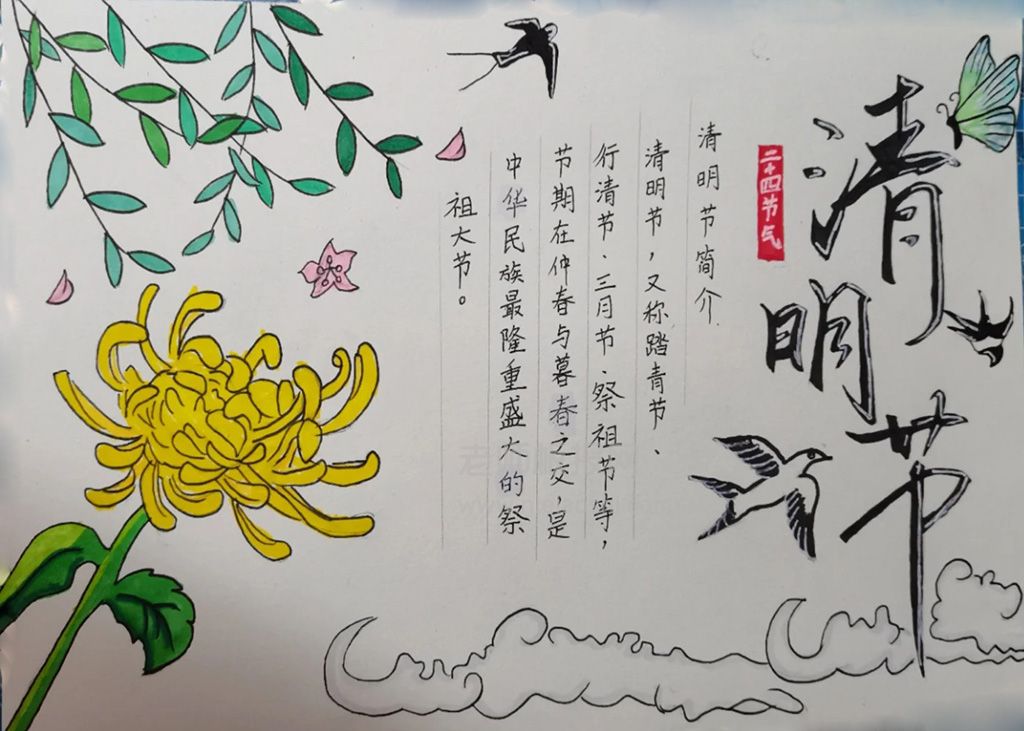 清明节
二十四节气
清明节简介
清明节，又称踏青节、
行清节、三月节、祭祖节等，
节期在仲春与暮春之交，是
中华民族最隆重盛大的祭
祖大节。